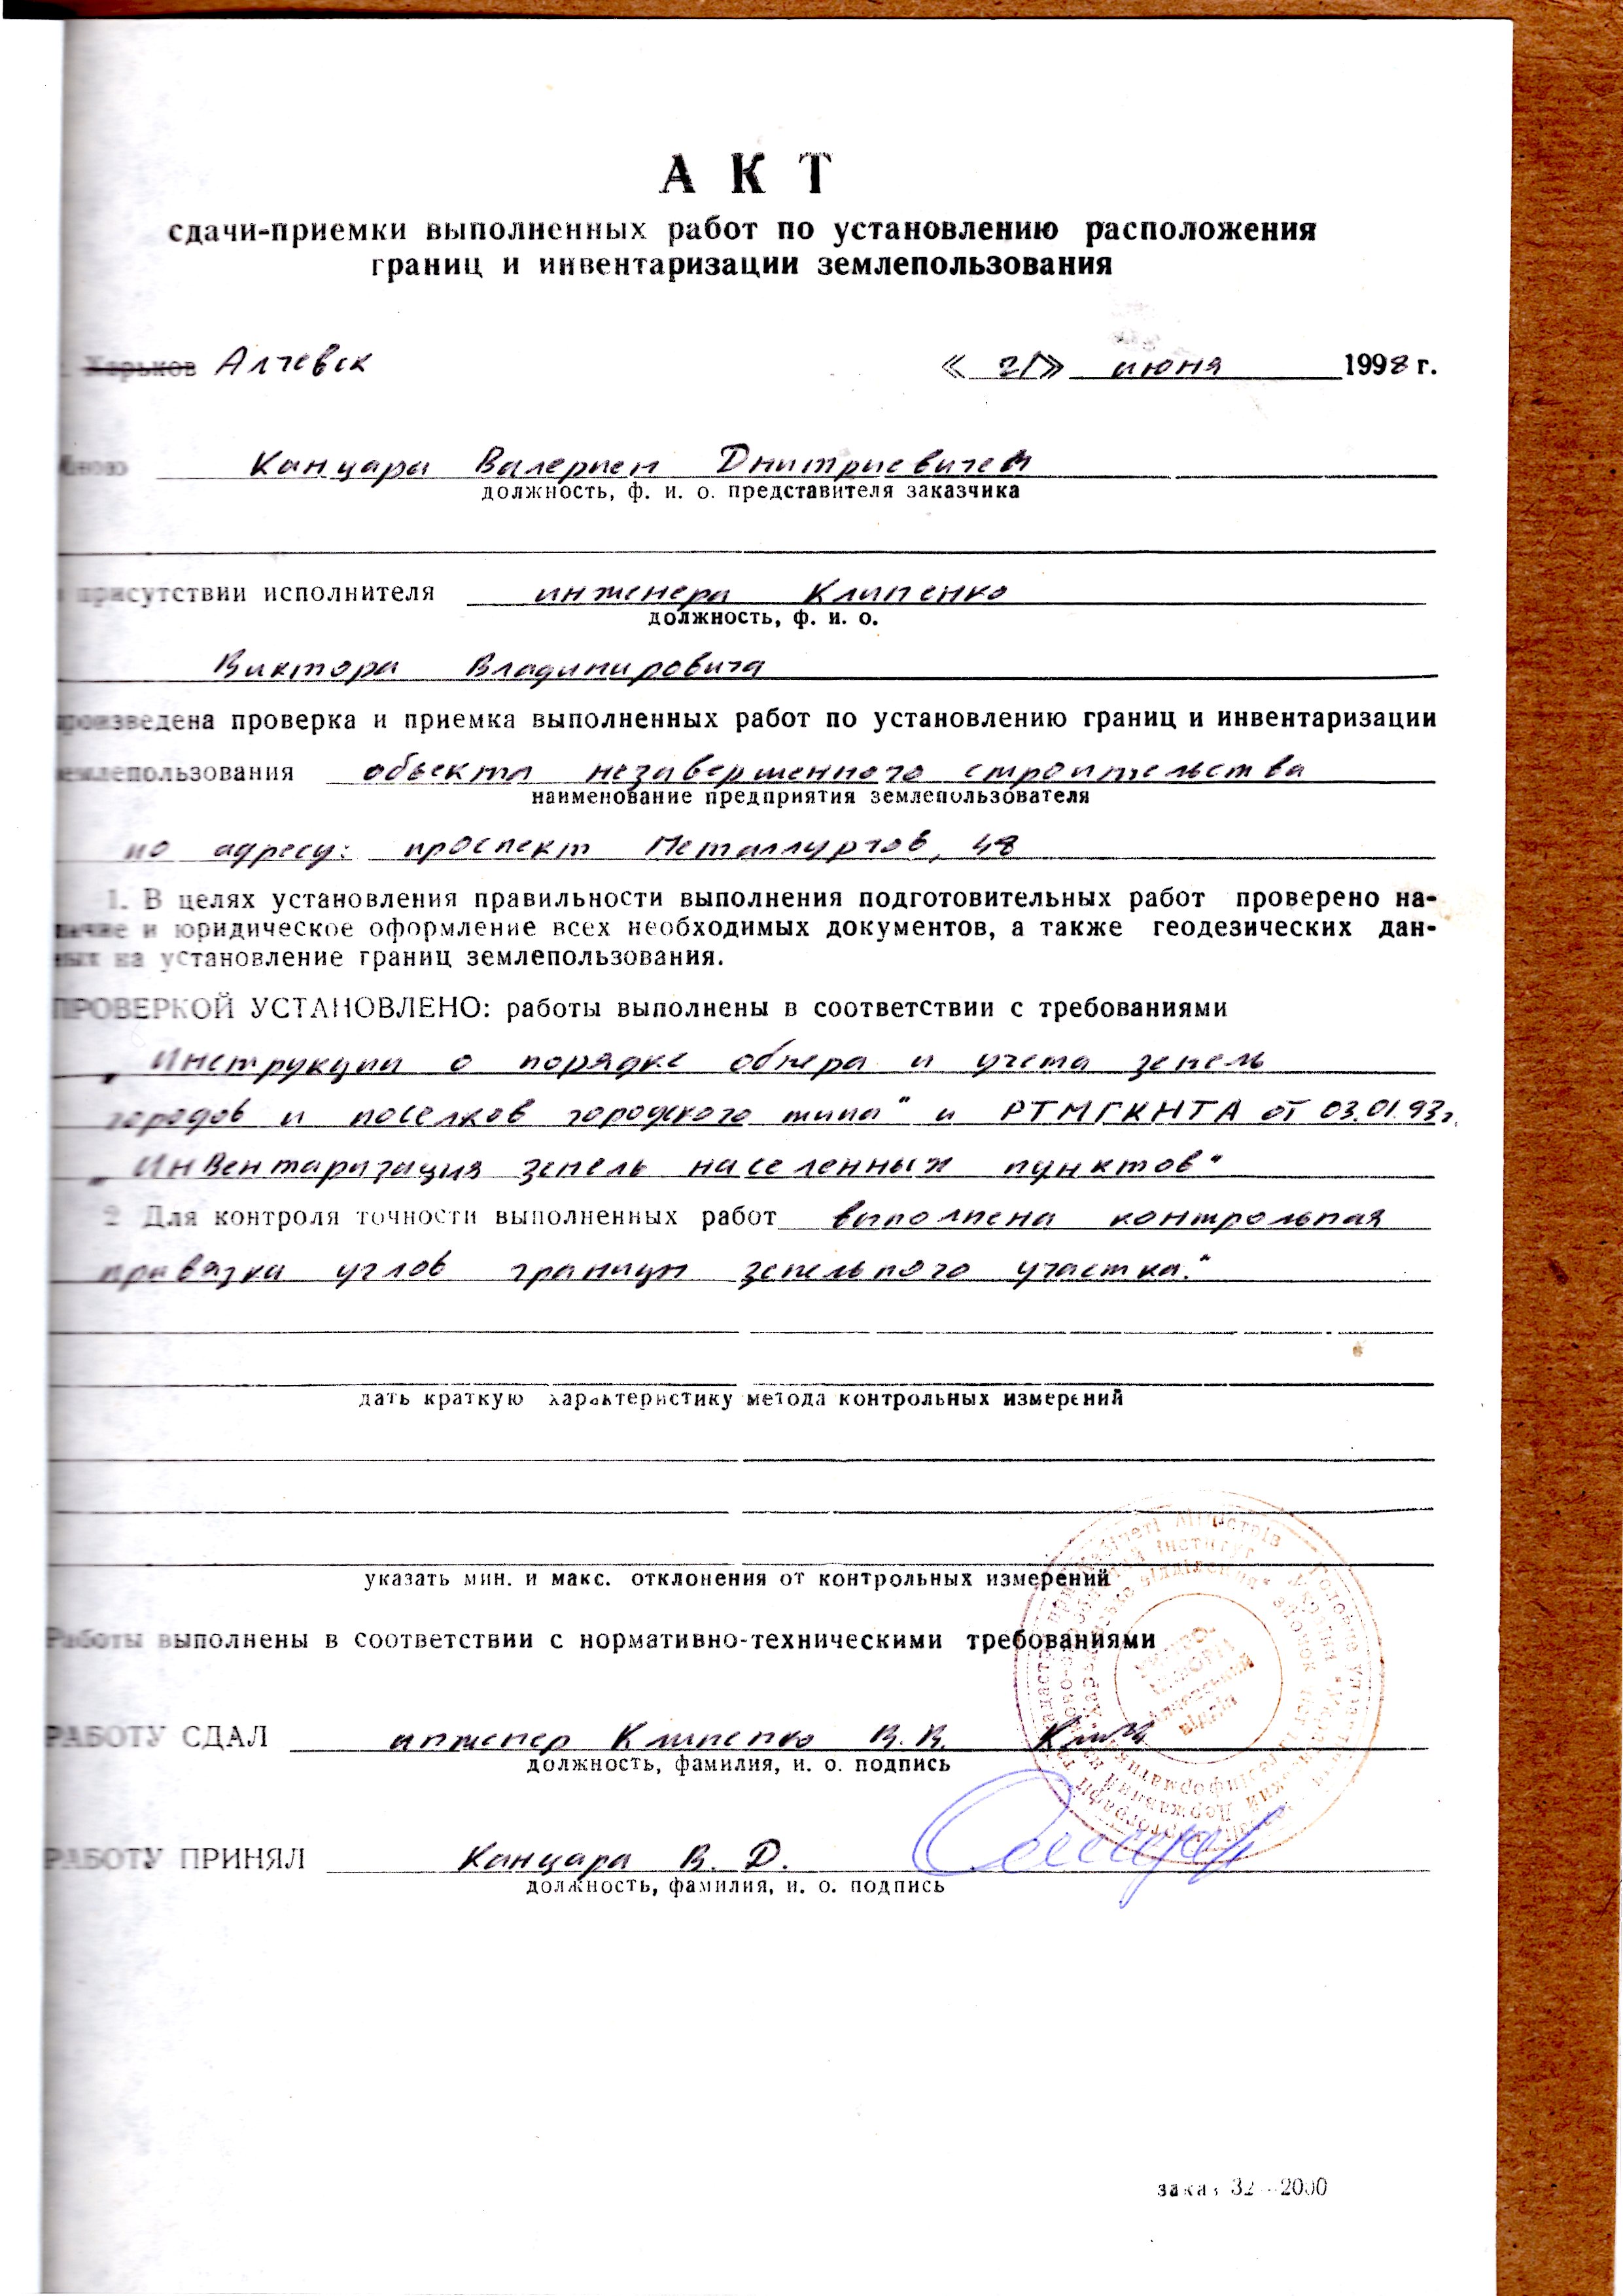 АКТ
сдачи-приемки выполненных работ по установлению расположения
границ и инвентаризации землепользования
Харьков Алчевск « 21 » июня 1998 г.
Мною Канцара Валерием Дмитриевичем
должность, ф. и. о. представителя заказчика
присутствии исполнителя инженера Клипенко
должность, ф. и. о.
Виктора Владимировича
произведена проверка и приемка выполненных работ по установлению границ и инвентаризации
землепользования объекта незавершенного строительства
наименование предприятия землепользователя
по адресу: проспект Металлургов, 48
1. В целях установления правильности выполнения подготовительных работ проверено на-
личие и юридическое оформление всех необходимых документов, а также геодезических дан-
ных на установление границ землепользования.
ПРОВЕРКОЙ УСТАНОВЛЕНО: работы выполнены в соответствии с требованиями
„Инструкции о порядке обмера и учета земель
городов и поселков городского типа" и РТМГКНТА от 03.01.93г.
„Инвентаризация земель населенных пунктов"
2 Для контроля точности выполненных работ выполнена контрольная
привязка углов границы земельного участка."
дать краткую характеристику метода контрольных измерений
указать мин. и макс. отклонения от контрольных измерений
Работы выполнены в соответствии с нормативно-техническими требованиями
РАБОТУ СДАЛ инженер Клипенко В. В.
должность, фамилия, и. о. подпись
РАБОТУ ПРИНЯЛ Канцара В. Д.
должность, фамилия, и. о. подпись
заказ 32—2000